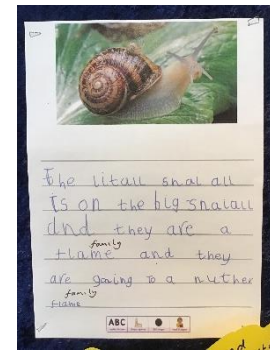 The litall snal all
Is on the big snalall
and they are a
family
flame and they
are going to a nuther
family
flame
ABC